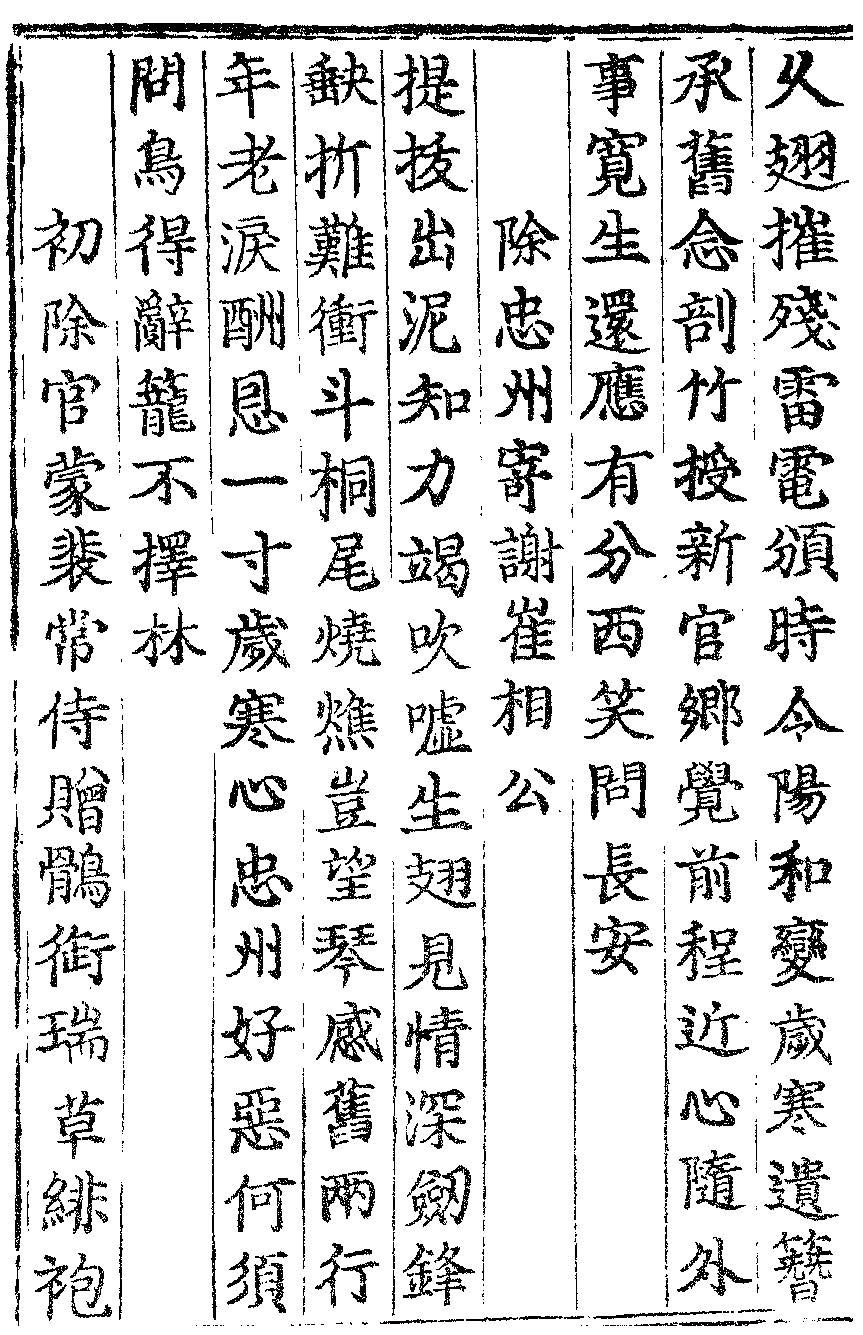 久翅摧殘雷電頒時令陽和變歲寒遺簪
承舊念剖竹授新官鄉覺前程近心隨外
事寛生還應有分西笑問長安
除忠州寄謝崔相公
提拔出泥知力竭吹嘘生翅見情深劒鋒
缺折難衝斗桐尾燒燋豈望琴感舊兩行
年老淚酬恩一寸歲寒心忠州好惡何須
問鳥得辭籠不擇林
初除官蒙裴常侍贈鶻銜瑞草緋袍